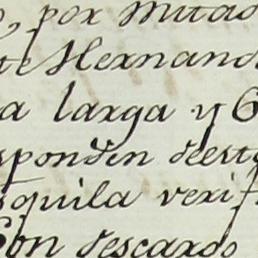 , por Mitad
te Hernand
a larga y 6
sponden de est
squila veri
Con descardo